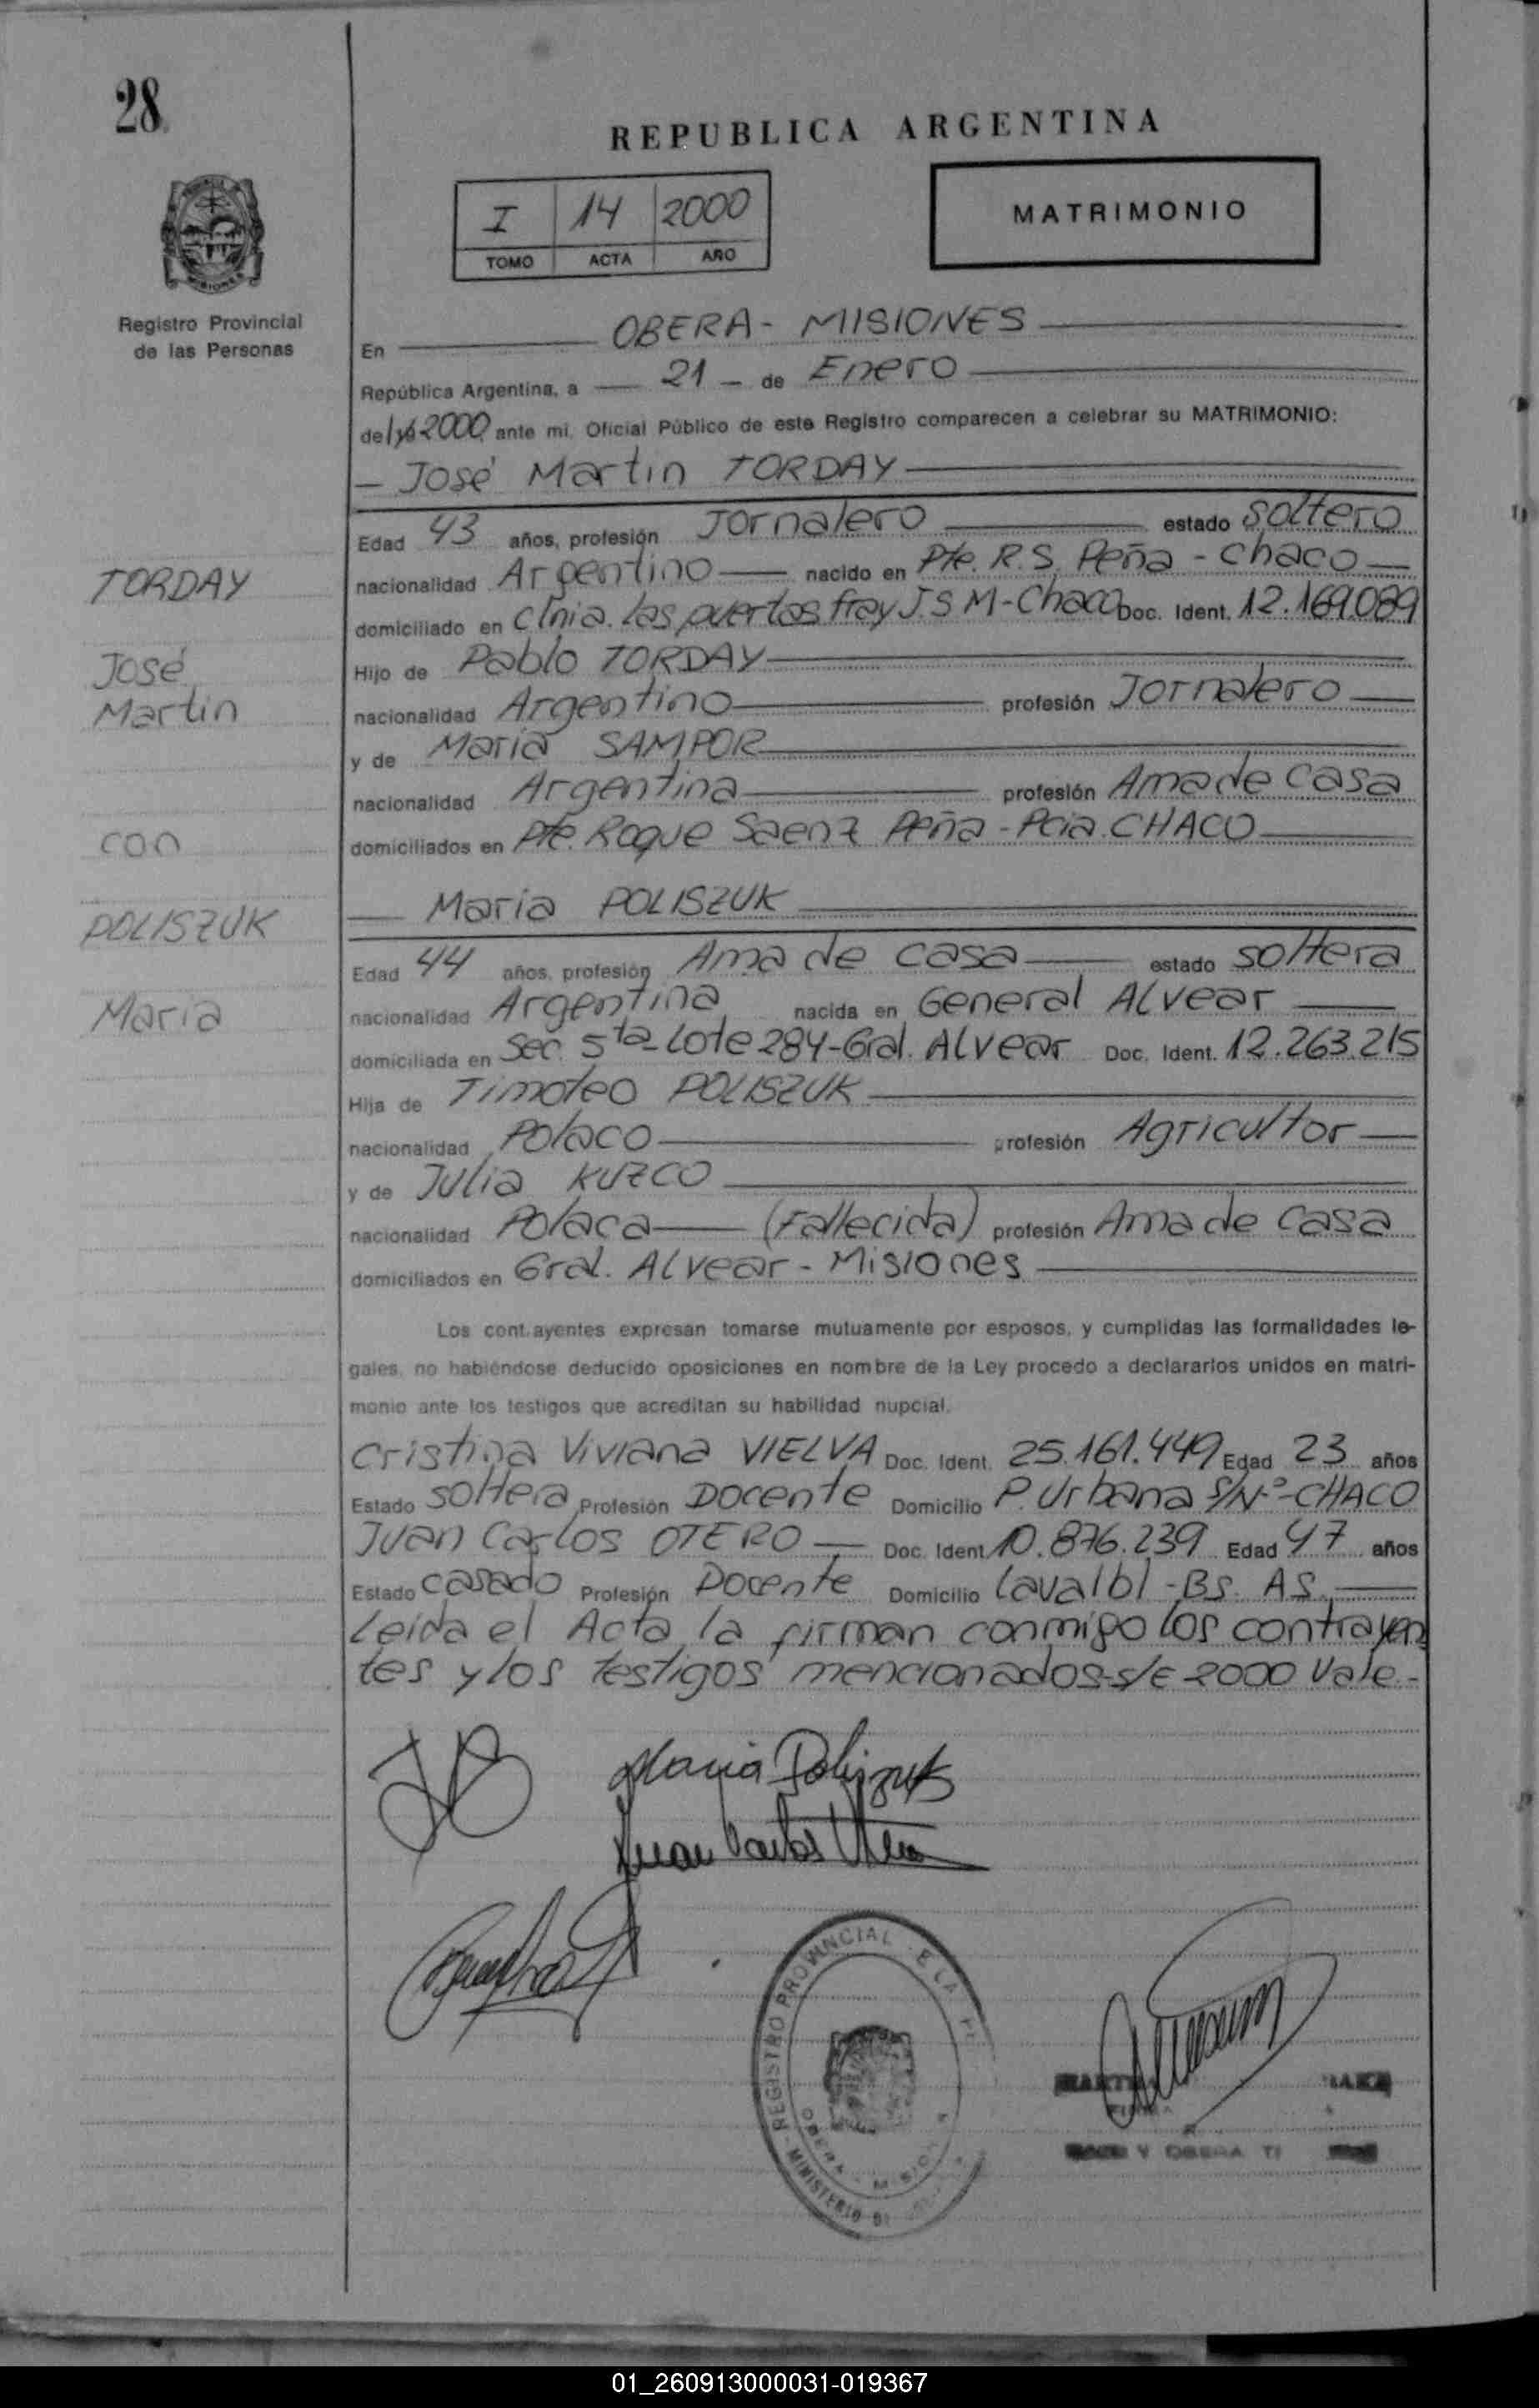 28
REPUBLICA ARGENTINA
I 14 2000
TOMO ACTA AÑO
MATRIMONIO
Registro Provincial
de las Personas
En OBERA - MISIONES
República Argentina, a 21 - de Enero
de 2000 ante mi, Oficial Público de este Registro comparecen a celebrar su MATRIMONIO:
- José Martin TORDAY
Edad 43 años, profesión Jornalero estado soltero
nacionalidad Argentino nacido en Pte. R.S. Peña - Chaco
domiciliado en Clnia. las puertas fray J.S M - Chaco Doc. Ident. 12.169.089
Hijo de Pablo TORDAY
nacionalidad Argentino profesión Jornalero
y de Maria SAMPOR
nacionalidad Argentina profesión Ama de Casa
domiciliados en Pte. Roque Saenz Peña - Pcia. CHACO
Maria POLISZUK
Edad 44 años, profesión Ama de casa estado soltera
nacionalidad Argentina nacida en General ALvear
domiciliada en Sec. 5ta Lote 284 - Gral. ALvear Doc. Ident. 12.263.215
Hija de Timoteo POLISZUK
nacionalidad Polaco profesión Agricultor
y de Julia KUZCO
nacionalidad Polaca (Fallecida) profesión Ama de Casa
domiciliados en Gral. ALvear - Misiones
TORDAY
José
Martin
con
POLISZUK
Maria
Los contrayentes expresan tomarse mutuamente por esposos, y cumplidas las formalidades le-
gales, no habiéndose deducido oposiciones en nombre de la Ley procedo a declararlos unidos en matri-
monio ante los testigos que acreditan su habilidad nupcial.
Cristina Viviana VIELVA Doc. Ident. 25.161.449 Edad 23 años
Estado soltera Profesión Docente Domicilio P. Urbana S/Nº - CHACO
Juan Carlos OTERO Doc. Ident 10.876.239 Edad 47 años
Estado casado Profesión Docente Domicilio Lavalbl - Bs. AS.
Leida el Acta, la firman conmigo los contrayen
tes y los testigos mencionados - s/E 2000 Vale.-
Maria Poliszuk
Juan Carlos Otero
REGISTRO PROVINCIAL E LA
OBERA - MISION
MINISTERIO DE
Y OBERA
01_260913000031-019367